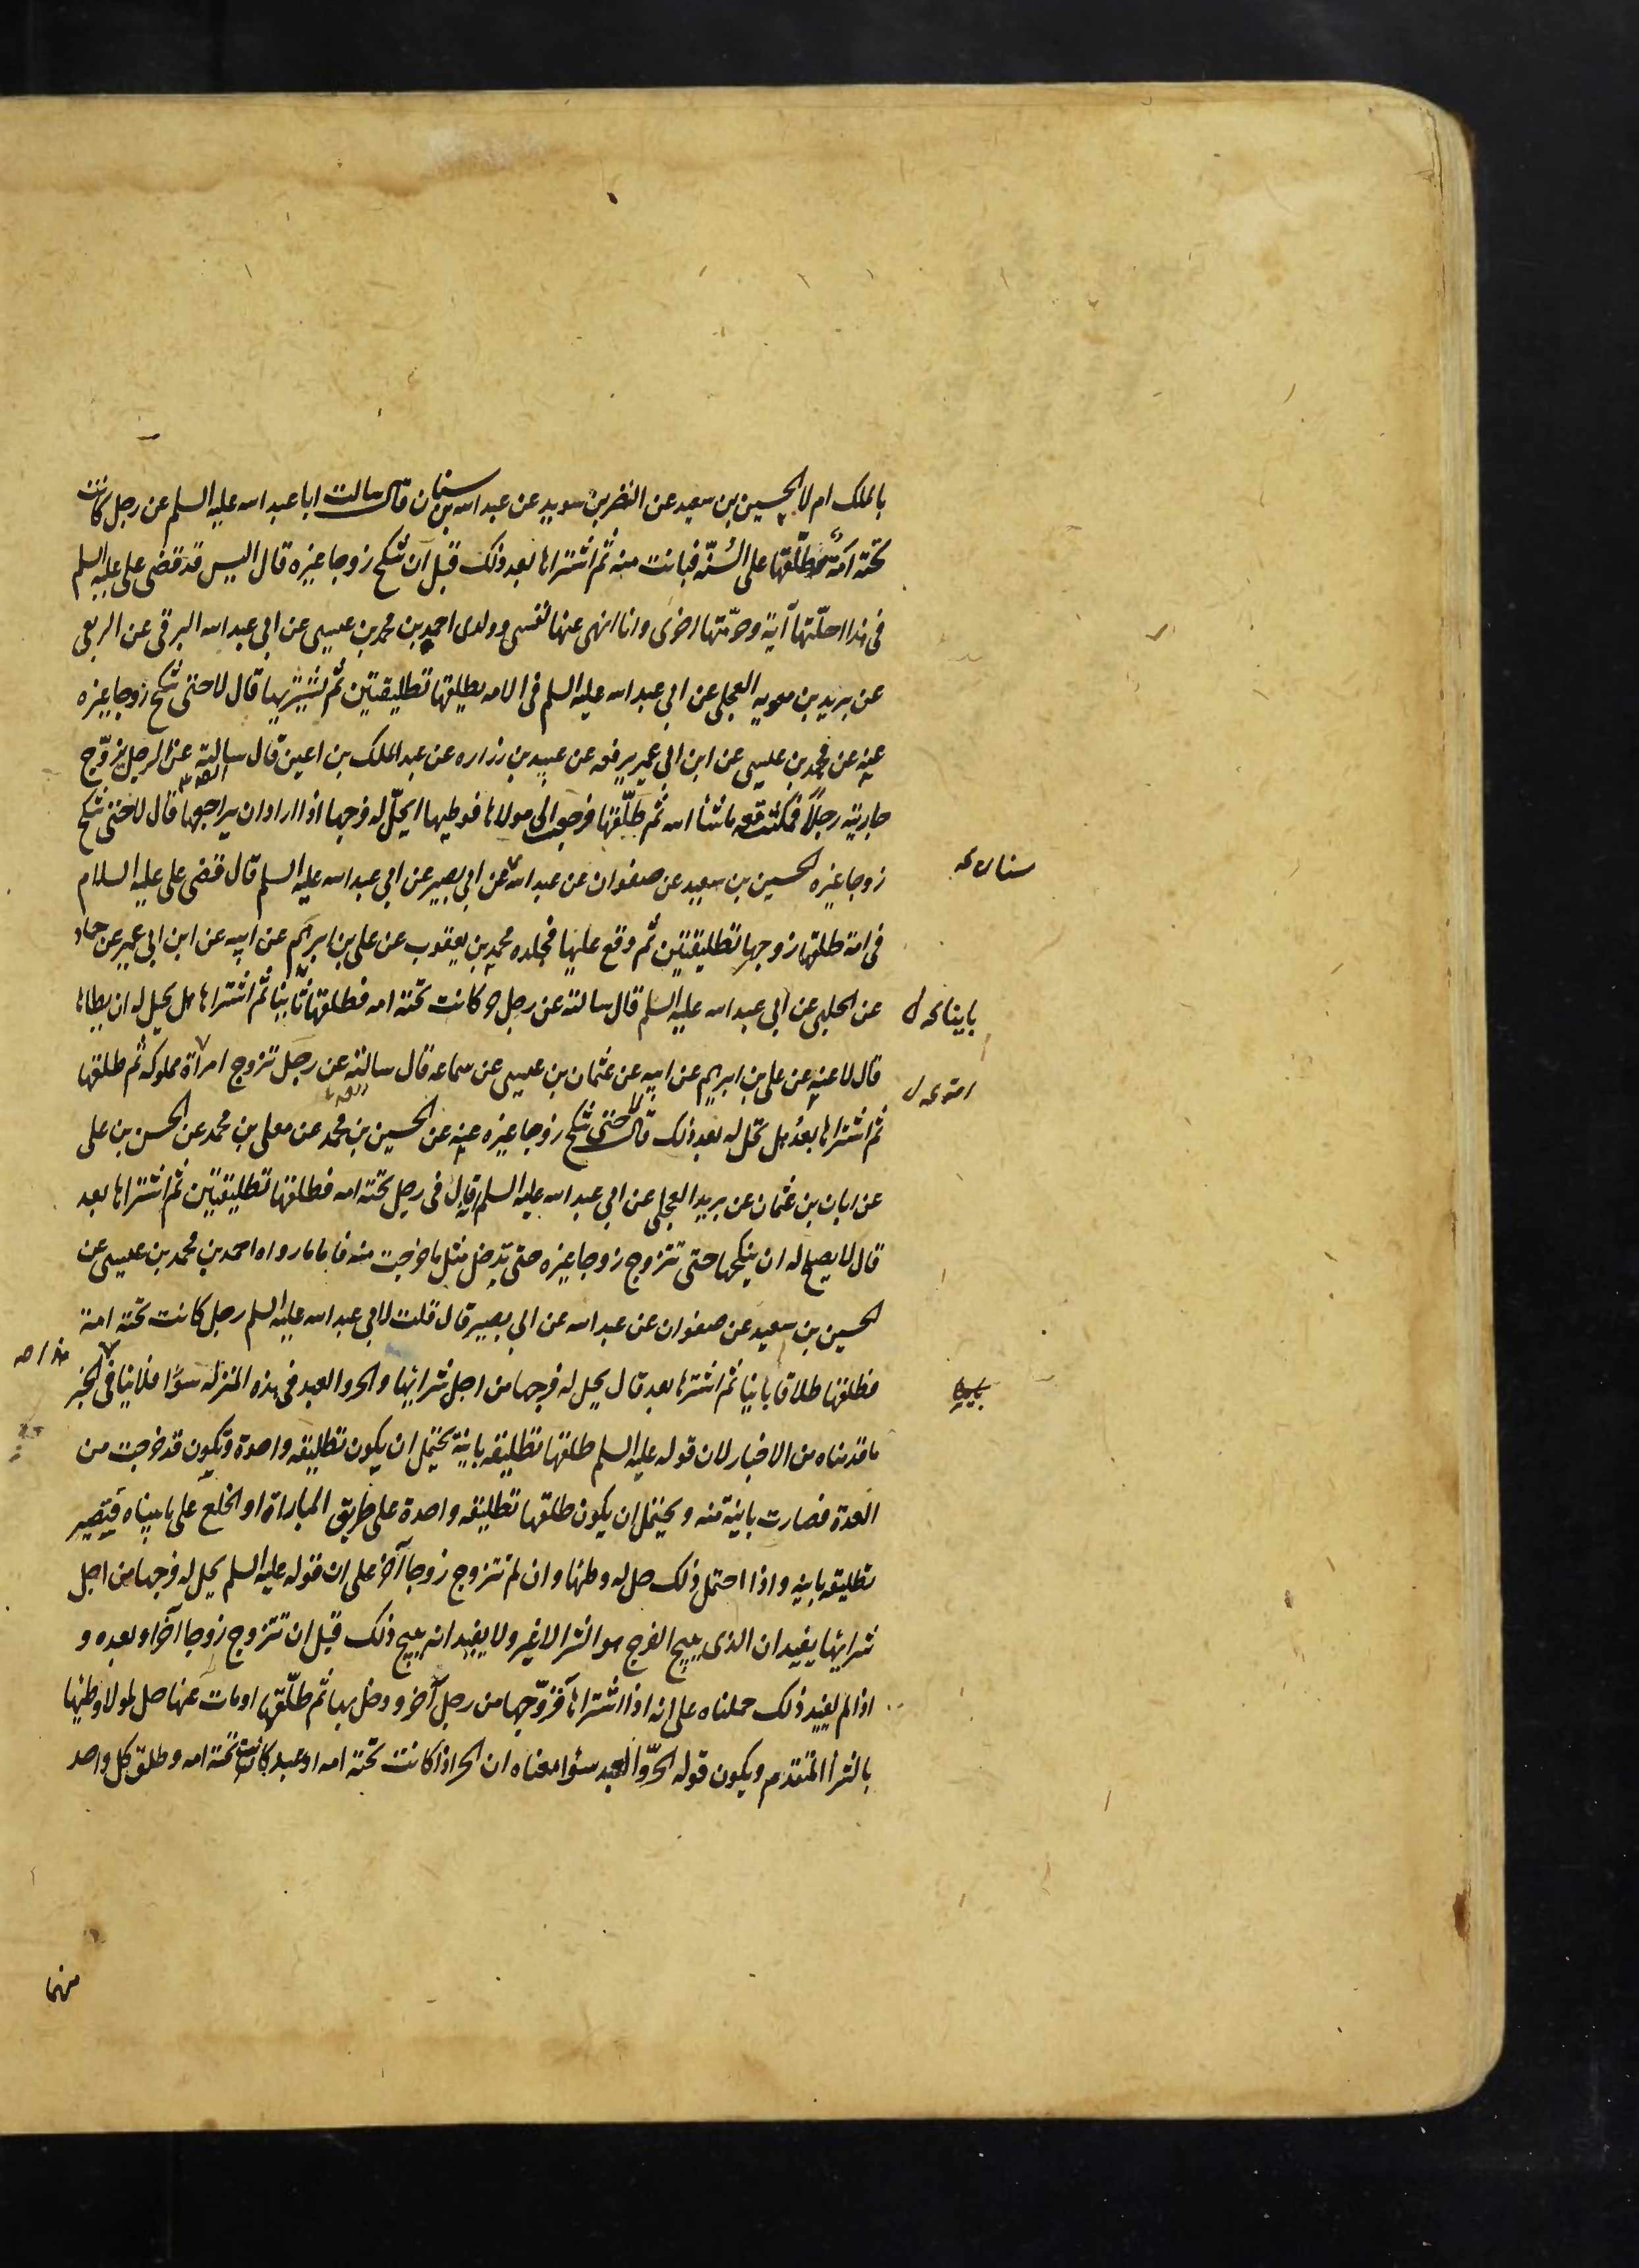 بالملك ام لا الحسين بن سعيد عن النضر بن سويد عن عبد الله بن سنان قال سالت ابا عبد الله عليه السلم عن رجل كانت
تحته امة طلّقها على السُّنّة فبانت منه ثم اشتراها بعد ذلك قبل ان تنكح زوجا غيره قال اليس قد قضى على عليه السلم
فى هذا احلّتها آية وحرّمتها اخرى وانا انهى عنها نفسى وولدى احمد بن محمد بن عيسى عن ابى عبد الله البرقى عن الربعى
عن بريد بن معويه العجلى عن ابى عبد الله عليه السلم فى الامه يطلقها تطليقتين ثم يشتريها قال لا حتى تنكح زوجا غيره
عنه عن محمد بن عيسى عن ابن ابى عمير يرفعه عن عبيد بن زراره عن عبد الملك بن اعين قال سالته عن الرجل يزوّج
جاريته رجلاً فمكثت معه ما شاء الله ثم طلّقها فرجعت الى مولاها فوطيها ايحلّ له فرجها اذا اراد ان يراجعها قال لا حتى تنكح
زوجا غيره الحسين بن سعيد عن صفوان عن عبد الله عن ابى بصير عن ابى عبد الله عليه السلم قال قضى على عليه السلام
سنان
فى امة طلقها زوجها تطليقتين ثم وقع عليها فجلده محمد بن يعقوب عن على بن ابرهيم عن ابيه عن ابن ابى عمير عن حماد
عن الحلبى عن ابى عبد الله عليه السلم قال سالته عن رجل حر كانت تحته امه فطلقها ثانيا ثم اشتراها هل يحل له ان يطاها
باينا
قال لا عنه عن على بن ابرهيم عن ابيه عن عثمان بن عيسى عن سماعه قال سالته عن رجل تزوج امراة مملوكه ثم طلقها
ثم اشتراها بعد هل تحل له بعد ذلك قال لا حتى تنكح زوجا غيره عنه عن الحسين بن محمد عن معلى بن محمد عن الحسن بن على
عن ابان بن عثمان عن بريد العجلى عن ابى عبد الله عليه السلم انه قال فى رجل تحته امه فطلقها تطليقتين ثم اشتراها بعد
قال لا يصلح له ان ينكحها حتى تتزوج زوجا غيره حتى يدخل مثل ما خرجت منه فاما ما رواه احمد بن محمد بن عيسى عن
الحسين بن سعيد عن صفوان عن عبد الله عن ابى بصير قال قلت لابى عبد الله عليه السلم رجل كانت تحته امة
فطلقها طلاقا باينا ثم اشتراها بعد قال يحل له فرجها من اجل شرائها والحر والعبد فى هذه المنزله سوًا فلا ينافى الخبر
ما قدمناه من الاخبار لان قوله عليه السلم طلقها تطليقه باينة يحتمل ان يكون تطليقه واحدة وتكون قد خرجت من
العدة فصارت باينة منه ويحتمل ان يكون طلقها تطليقه واحدة على طريق المباراة او الخلع على ما بيناه فيتصير
تطليقه باينه واذا احتمل ذلك حل له وطئها وان لم تتزوج زوجا آخر على ان قوله عليه السلم يحل له فرجها من اجل
شرايها يفيد ان الذى يبيح الفرج هو الشرا لا غير ولا يفيد انه يبيح ذلك قبل ان تتزوج زوجا آخر او بعده و
اذا لم يفيد ذلك حملناه على انه اذا اشتراها فزوّجها من رجل آخر ودخل بها ثم طلّقها او مات عنها حل لمولاه وطئها
بالشرا المتقدم ويكون قوله الحرّ والعبد سوًا معناه ان الحر اذا كانت تحته امه او عبد كانت تحته امه وطلق كل واحد
منهما